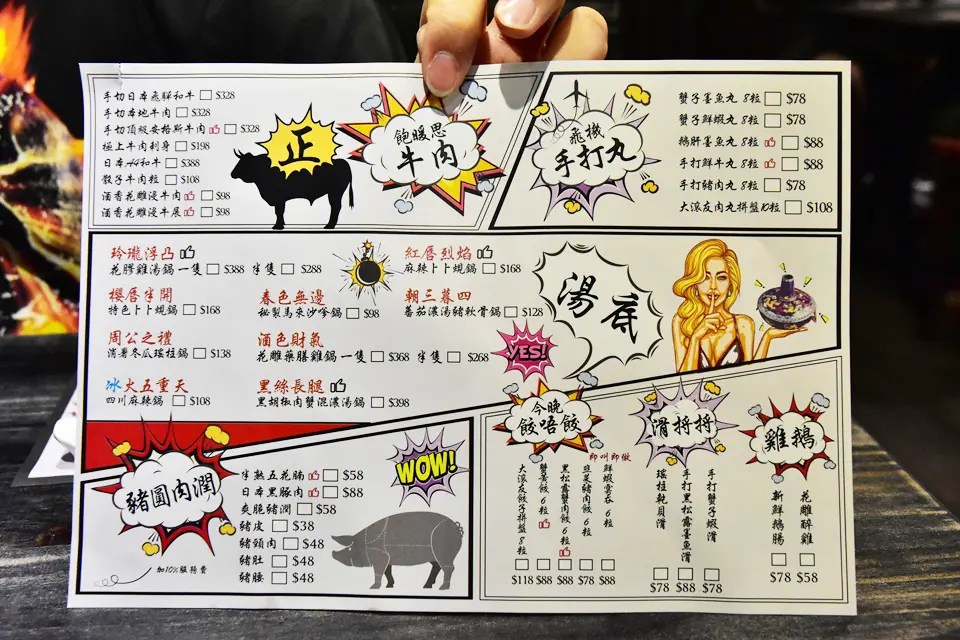 正
飽暖思
牛肉
手切日本飛騨和牛 $328
手切本地牛肉 $328
手切頂級安格斯牛肉 $328
極上牛肉刺身 $198
日本A4和牛 $388
骰子牛肉粒 $108
酒香花雕浸牛肉 $98
酒香花雕浸牛展 $98
飛檄
手打丸
蟹子墨魚丸 8粒 $78
蟹子鮮蝦丸 8粒 $78
鵝肝墨魚丸 8粒 $88
手打鮮牛丸 8粒 $88
手打豬肉丸 8粒 $78
大滾友肉丸拼盤 10粒 $108
湯底
YES!
玲瓏浮凸
花膠雞湯鍋 一隻 $388 半隻 $288
紅唇烈焰
麻辣卜卜蜆鍋 $168
櫻唇半開
特色卜卜蜆鍋 $168
春色無邊
秘製馬來沙爹鍋 $98
朝三暮四
蕃茄濃湯豬軟骨鍋 $128
周公之禮
消暑冬瓜瑤柱鍋 $138
酒色財氣
花雕藥膳雞鍋 一隻 $368 半隻 $268
冰火五重天
四川麻辣鍋 $108
黑絲長腿
黑胡椒肉蟹混濃湯鍋 $398
豬圓肉潤
WOW!
半熟五花腩 $58
日本黑豚肉 $88
爽脆豬潤 $58
豬皮 $38
豬頸肉 $48
豬肚 $48
豬腰 $48
加10%服務費
今晚
餃唔餃
即叫即做
鮮蝦雲吞 6粒 $88
韮菜豬肉餃 6粒 $78
黑松露蟹肉餃 6粒 $88
蟹黃餃 6粒 $88
大滾友餃子拼盤 8粒 $118
滑捋捋
手打蟹子蝦滑 $78
手打黑松露墨魚滑 $88
瑤柱乾貝滑 $78
雞鵝
花雕醉雞 $58
新鮮鵝腸 $78